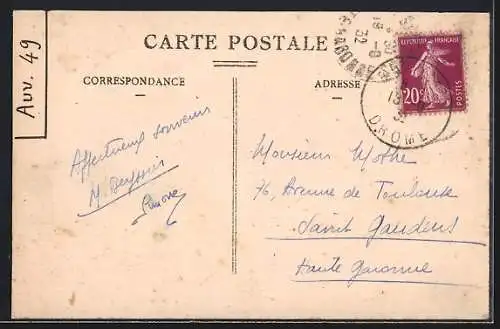 Auv. 49
CARTE POSTALE
CORRESPONDANCE
ADRESSE
REPUBLIQUE FRANÇAISE
20c
POSTES
DROME
Affectueux souvenirs
M.
Simone
Monsieur Mothe
76, Avenue de Toulouse
Saint Gaudens
Haute Garonne